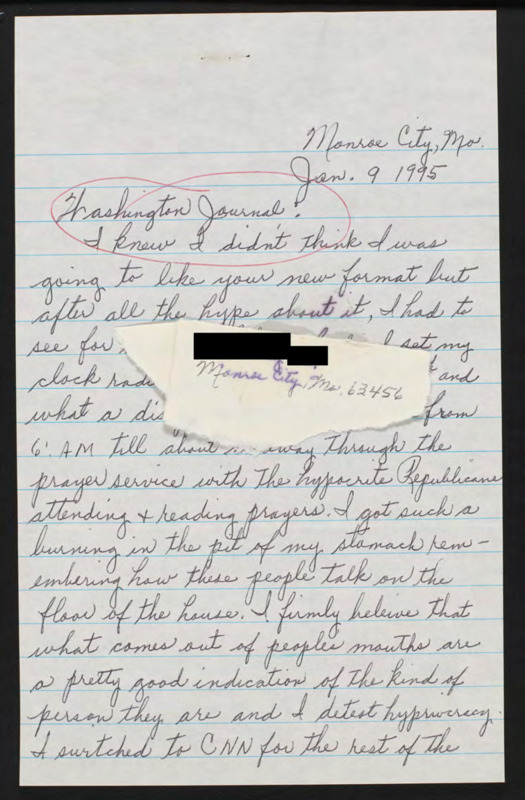 Monroe City, Mo.
Jan. 9 1995
Washington Journal:
I knew I didn't think I was
going to like your new format but
after all the hype about it, I had to
see for
set my
clock radi
and
Monroe City, Mo. 63456
what a dis
from
6: AM till about
away through the
prayer service with the hypocrite Republicans
attending & reading prayers. I got such a
burning in the pit of my stomach rem-
embering how these people talk on the
floor of the house. I firmly beleive that
what comes out of peoples mouths are
a pretty good indication of the kind of
person they are and I detest hyprocracy.
I surtched to CNN for the rest of the